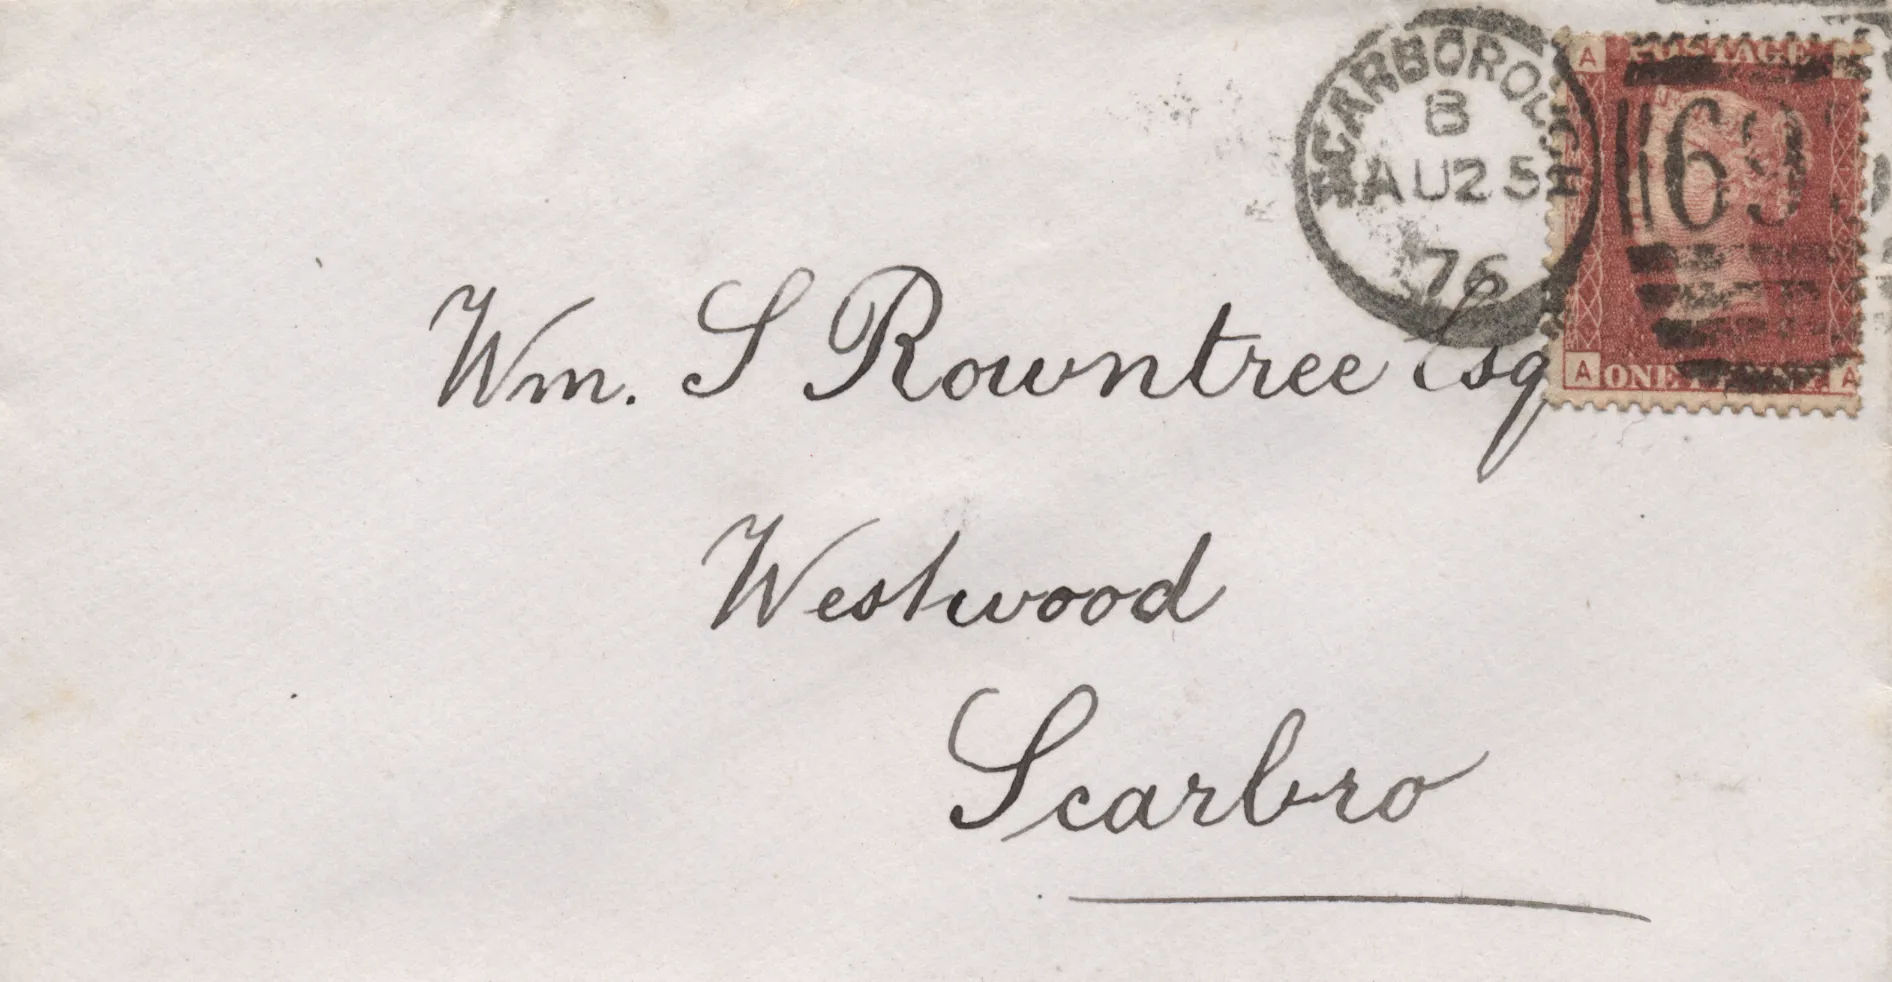 SCARBOROUGH
B
AU 25
76
A
POSTAGE
69
A
ONE PENNY
A
Wm. S Rowntree Esq
Westwood
Scarbro